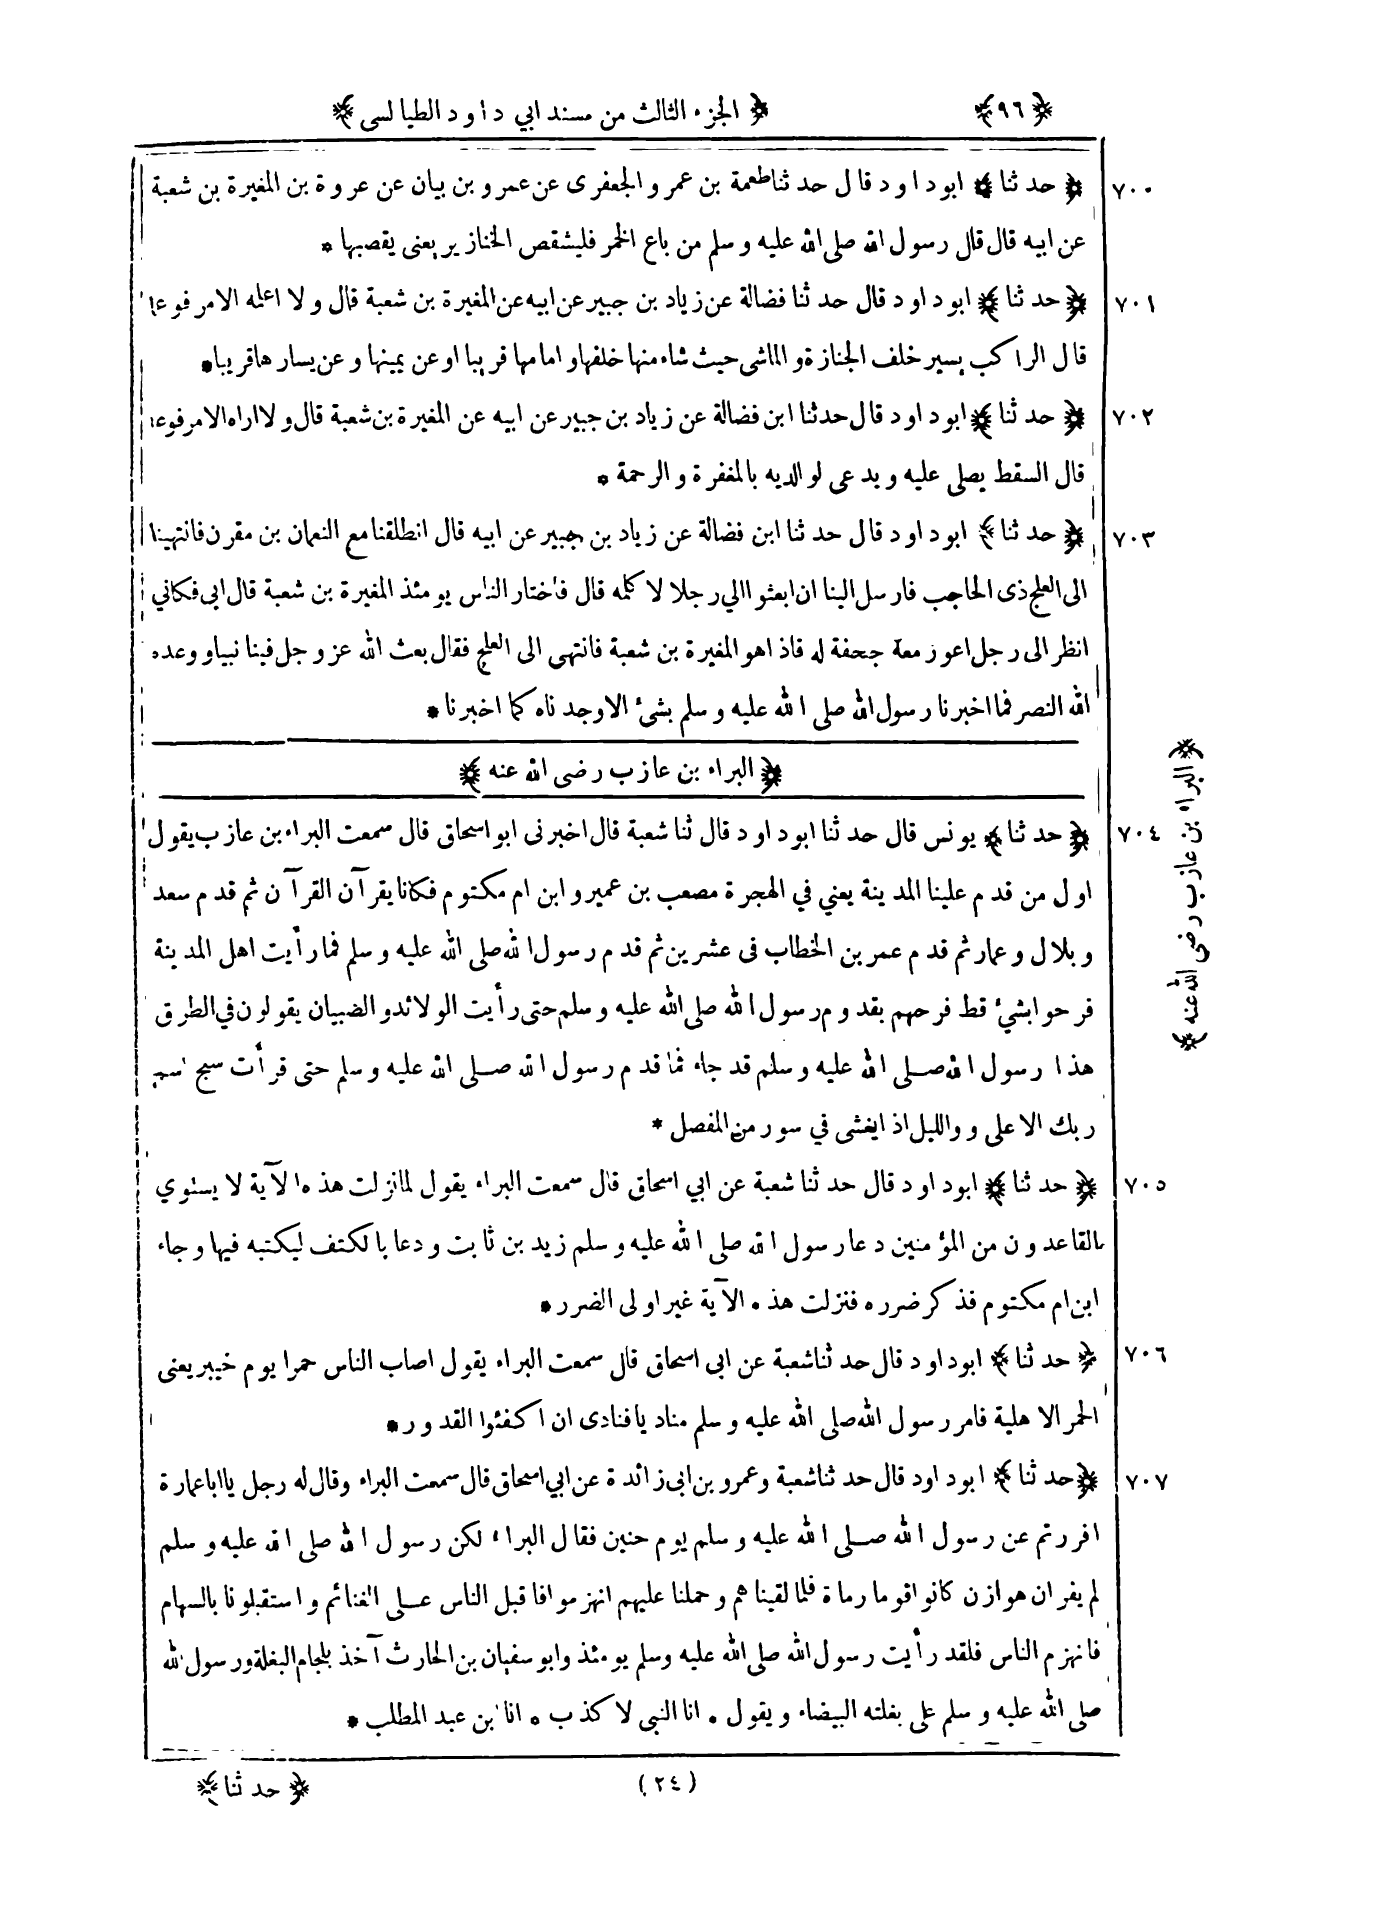 ﴿٩٦﴾ ﴿الجزء الثالث من مسند ابي داود الطيالسى﴾
٧٠٠ ﴿حدثنا﴾ ابوداود قال حدثنا طعمة بن عمرو الجعفرى عن عمرو بن بيان عن عروة بن المغيرة بن شعبة
عن ابيه قال قال رسول الله صلى الله عليه وسلم من باع الخمر فليشقص الخنازير يعنى يقصبها *
٧٠١ ﴿حدثنا﴾ ابوداود قال حدثنا فضالة عن زياد بن جبير عن ابيه عن المغيرة بن شعبة قال ولا اعلمه الا مرفوعا
قال الراكب يسير خلف الجنازة والماشى حيث شاء منها خلفها وامامها قريبا او عن يمينها وعن يسارها قريبا *
٧٠٢ ﴿حدثنا﴾ ابوداود قال حدثنا ابن فضالة عن زياد بن جبير عن ابيه عن المغيرة بن شعبة قال ولا اراه الا مرفوعا
قال السقط يصلى عليه ويدعى لوالديه بالمغفرة والرحمة *
٧٠٣ ﴿حدثنا﴾ ابوداود قال حدثنا ابن فضالة عن زياد بن جبير عن ابيه قال انطلقنا مع النعمان بن مقرن فانتهينا
الى العلج ذى الحاجب فارسل الينا ان ابعثوا الي رجلا لا كلمه قال فاختار الناس يومئذ المغيرة بن شعبة قال ابى فكاني
انظر الى رجل اعور معه جحفة له قاذا هو المغيرة بن شعبة فانتهى الى العلج فقال بعث الله عز وجل فينا نبيا ووعده
الله النصر فما اخبرنا رسول الله صلى الله عليه وسلم بشئ الا وجدناه كما اخبرنا *
﴿البراء بن عازب رضى الله عنه﴾
﴿البراء بن عازب رضى الله عنه﴾
٧٠٤ ﴿حدثنا﴾ يونس قال حدثنا ابوداود قال ثنا شعبة قال اخبرنى ابو اسحاق قال سمعت البراء بن عازب يقول
اول من قدم علينا المدينة يعني في الهجرة مصعب بن عمير وابن ام مكتوم فكانا يقرآن القرآن ثم قدم سعد
وبلال وعمار ثم قدم عمر بن الخطاب فى عشرين ثم قدم رسول الله صلى الله عليه وسلم فما رأيت اهل المدينة
فرحوا بشئ قط فرحهم بقدوم رسول الله صلى الله عليه وسلم حتى رأيت الولائد والضبيان يقولون في الطرق
هذا رسول الله صلى الله عليه وسلم قد جاء فما قدم رسول الله صلى الله عليه وسلم حتى قرأت سبح اسم
ربك الاعلى و والليل اذا يغشى في سور من المفصل *
٧٠٥ ﴿حدثنا﴾ ابوداود قال حدثنا شعبة عن ابي اسحاق قال سمعت البراء يقول لما نزلت هذه الآية لا يستوي
القاعدون من المؤمنين دعا رسول الله صلى الله عليه وسلم زيد بن ثابت ودعا بالكتف ليكتبه فيها وجاء
ابن ام مكتوم فذكر ضرره فنزلت هذه الآية غير اولى الضرر *
٧٠٦ ﴿حدثنا﴾ ابوداود قال حدثنا شعبة عن ابى اسحاق قال سمعت البراء يقول اصاب الناس حمرا يوم خيبر يعنى
الحمر الاهلية فامر رسول الله صلى الله عليه وسلم مناديا فنادى ان اكفئوا القدور *
٧٠٧ ﴿حدثنا﴾ ابوداود قال حدثنا شعبة وعمرو بن ابى زائدة عن ابي اسحاق قال سمعت البراء وقال له رجل يا ابا عمارة
افررتم عن رسول الله صلى الله عليه وسلم يوم حنين فقال البراء لكن رسول الله صلى الله عليه وسلم
لم يفر ان هوازن كانوا قوما رماة فلما لقيناهم وحملنا عليهم انهزموا فاقبل الناس على الغنائم واستقبلونا بالسهام
فانهزم الناس فلقد رأيت رسول الله صلى الله عليه وسلم يومئذ وابو سفيان بن الحارث آخذ بلجام البغلة ورسول الله
صلى الله عليه وسلم على بغلته البيضاء ويقول * انا النبى لا كذب * انا ابن عبد المطلب *
(٢٤) ﴿حدثنا﴾